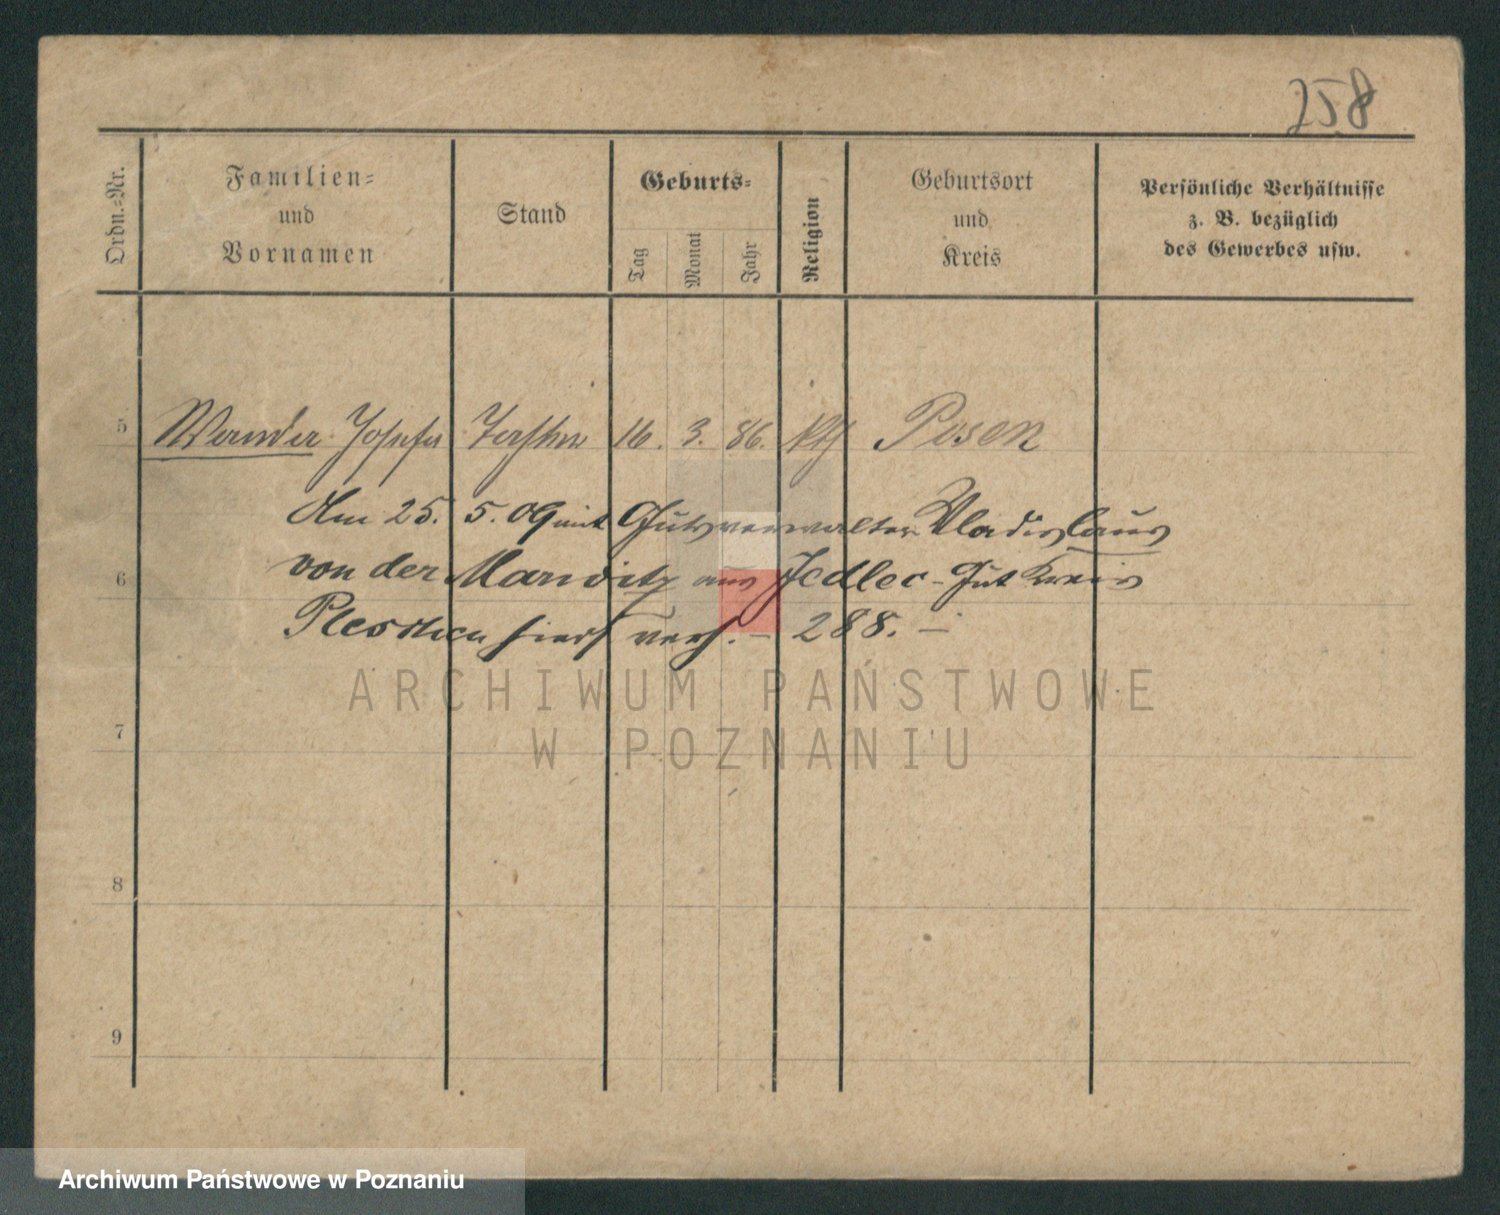 258
Ordn.-Nr.
Familien-
und
Vornamen
Stand
Geburts-
Tag
Monat
Jahr
Religion
Geburtsort
und
Kreis
Persönliche Verhältnisse
z. B. bezüglich
des Gewerbes usw.
5 Wanda Josefa Tochter 16. 3. 86. kth Posen
Am 25. 5. 09 mit Gutsverwalter Vladislaus
6 von der Marwitz aus Jedlec-Gut Kreis
Pleschen hier verh. – 288. –
ARCHIWUM PAŃSTWOWE
W POZNANIU
7
8
9
Archiwum Państwowe w Poznaniu